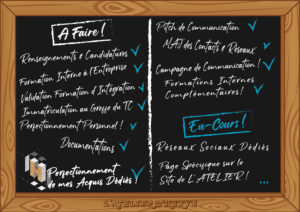 A Faire !
Renseignements & Candidatures
Formation Interne à l'Entreprise
Validation Formation d'Intégration
Immatriculation au Greffe du TC
Perfectionnement Personnel !
Documentations
Perfectionnement
de mes Acquis Dédiés !
Pitch de Communication
MAJ des Contacts & Réseaux
Campagne de Communication !
Formations Internes
Complémentaires !
En-Cours !
Réseaux Sociaux Dédiés
Page Spécifique sur le
Site de L'ATELIER !
...